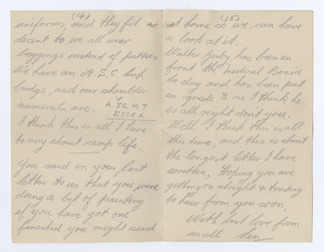 (14)
uniforms, and they fit
decent to we all wear
leggings instead of putties
We have an A.S.C. cap
badge, and our shoulder
numerals are. A.S.C. M.T
ESSEX
I think this is all I have
to say about camp life.
You said in your last
letter to us that you were
doing a bit of painting
if you have got one
finished you might send
(15)
it home so we can have
a look at it.
Walter has been in
front the Medical Board
to day and has been put
in grade 3 so I think he
is all right don't you.
Well I think this is all
this time, and this is about
the longest letter I have
written, Hoping you are
getting on alright & trusting
to hear from you soon.
With best love from
us all